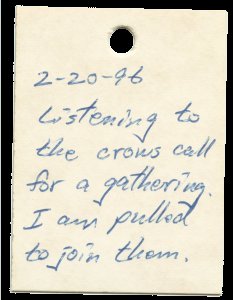 2-20-96
Listening to
the crows call
for a gathering.
I am pulled
to join them.